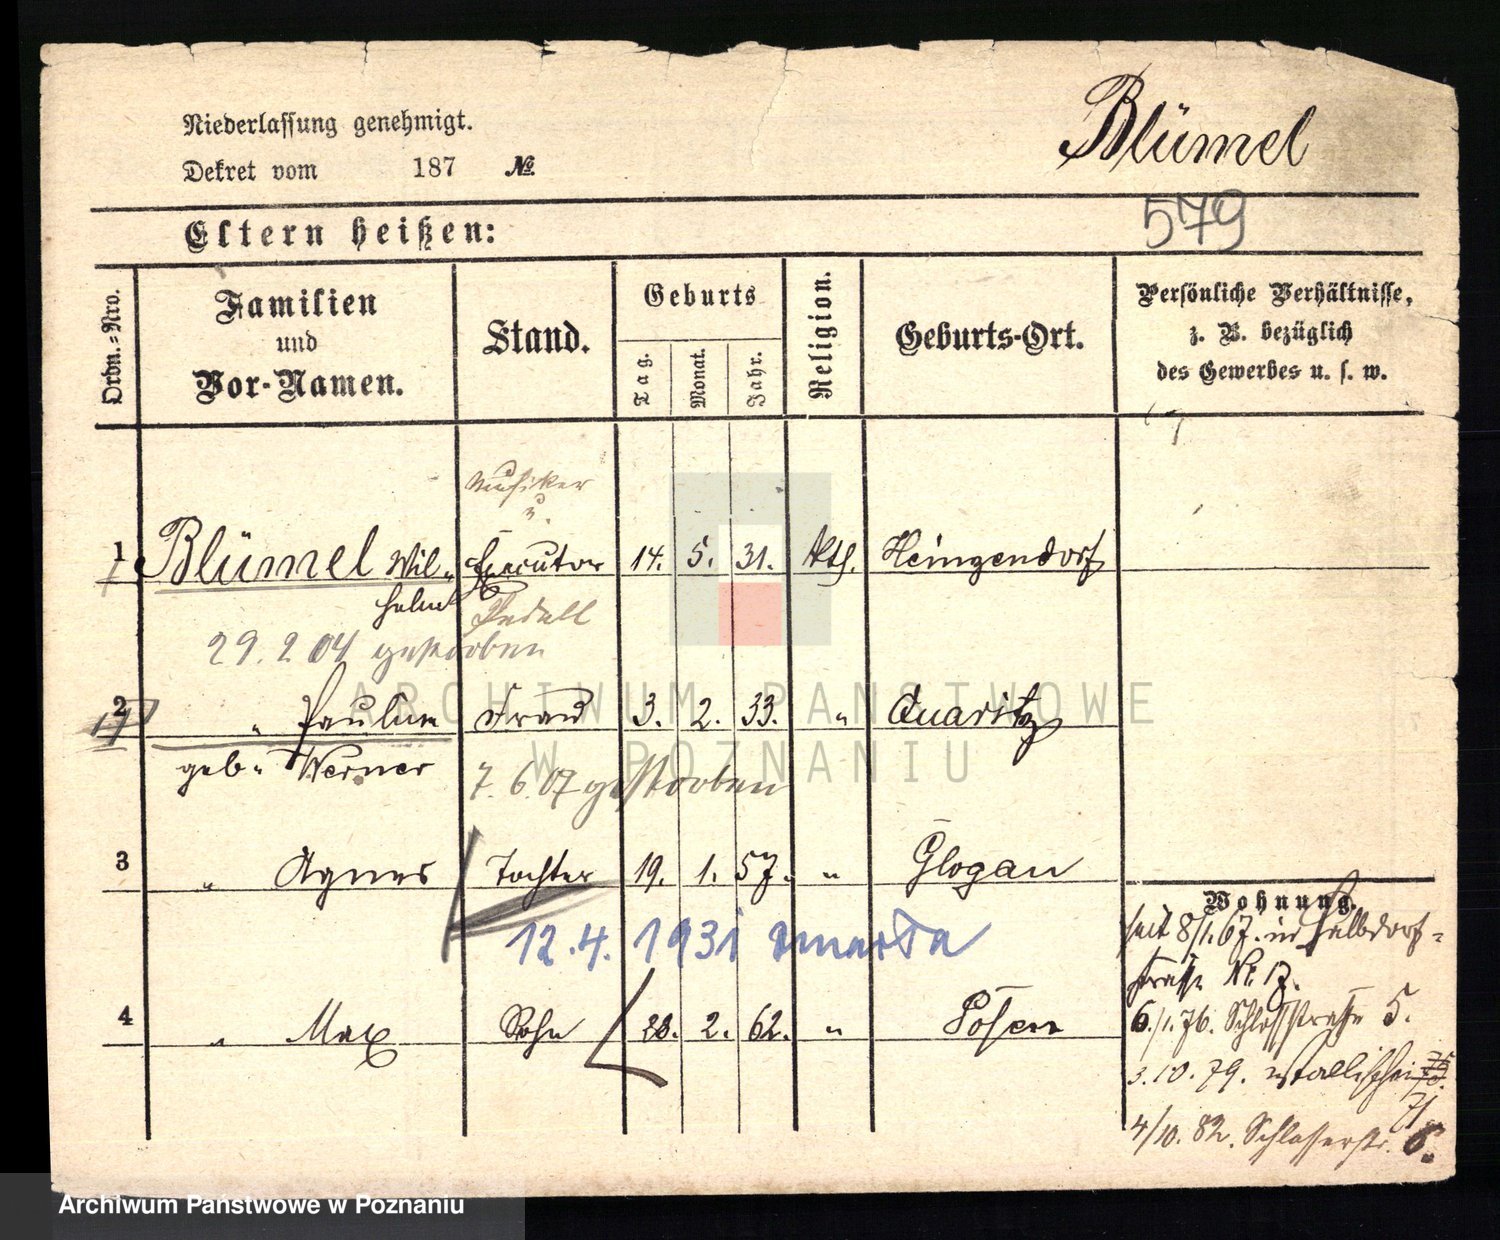 Niederlassung genehmigt.
Blümel
Dekret vom 187 №
579
Eltern heißen:
Ordn.=Nro.
Familien
und
Vor-Namen.
Stand.
Geburts
Tag.
Monat.
Jahr.
Religion.
Geburts-Ort.
Persönliche Verhältnisse,
z. B. bezüglich
des Gewerbes u. s. w.
Musiker
u.
1 Blümel Wil- Executor 14. 5. 31. kth. Heinzendorf
helm Pedell
29. 2 04 gestorben
2 " Pauline Frau 3. 2. 33. " Quaritz
geb. Werner
7. 6. 07 gestorben
3 " Agnes Tochter 19. 1. 57. " Glogau
12.4. 1931 zmarła
4 " Max Sohn 28. 2. 62. " Posen
Wohnung.
seit 8/1. 67. in Halbdorf-
strasse Nr. 17.
6./1. 76. Schloßstraße 5.
3. 10. 79. Wallischei
71
4/10. 82. Schlosserstr. 6.
ARCHIWUM PAŃSTWOWE
W POZNANIU
Archiwum Państwowe w Poznaniu